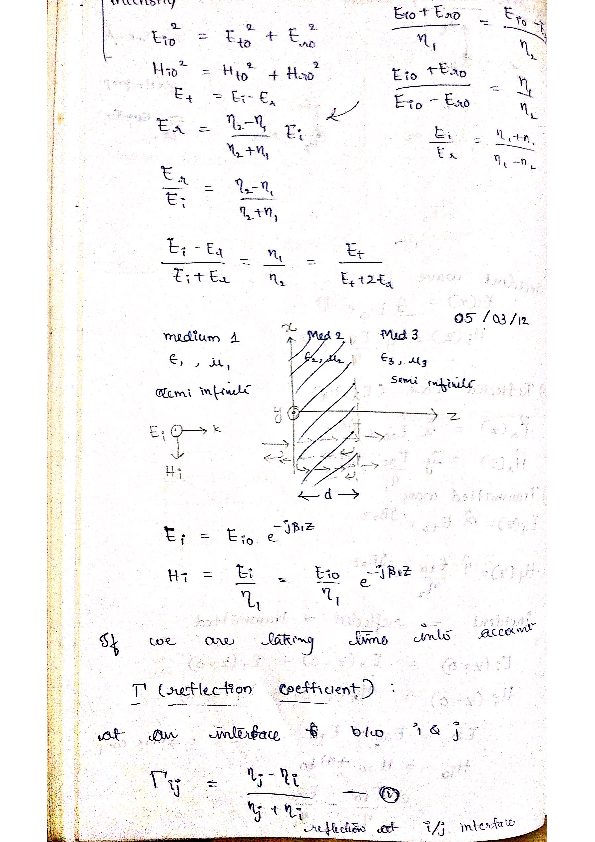 intensity
E_io² = E_to² + E_ro²
H_io² = H_to² + H_ro²
E_t = E_i - E_r
E_r = (η₂-η₁)/(η₂+η₁) E_i
E_r/E_i = (η₂-η₁)/(η₂+η₁)
(E_i - E_r)/(E_i + E_r) = η₁/η₂ = E_t/(E_t+2E_r)
(E_io + E_ro)/η₁ = E_io - E/η₂
(E_io + E_ro)/(E_io - E_ro) = η₁/η₂
E_i/E_r = (η₁+η)/(η₁-η₂)
05/03/12
medium 1
ε₁, μ₁
semi infinite
x
Med 2
ε₂, μ₂
Med 3
ε₃, μ₃
semi infinite
y
z
E_i k
H_i
d
E_i = E_io e^-jβ₁z
H_i = E_i/η₁ = E_io/η₁ e^-jβ₁z
If we are taking time into account
Γ (reflection coefficient) :
at an interface b/w i & j
Γ_ij = (η_j - η_i)/(η_j + η_i)
reflection at i/j interface